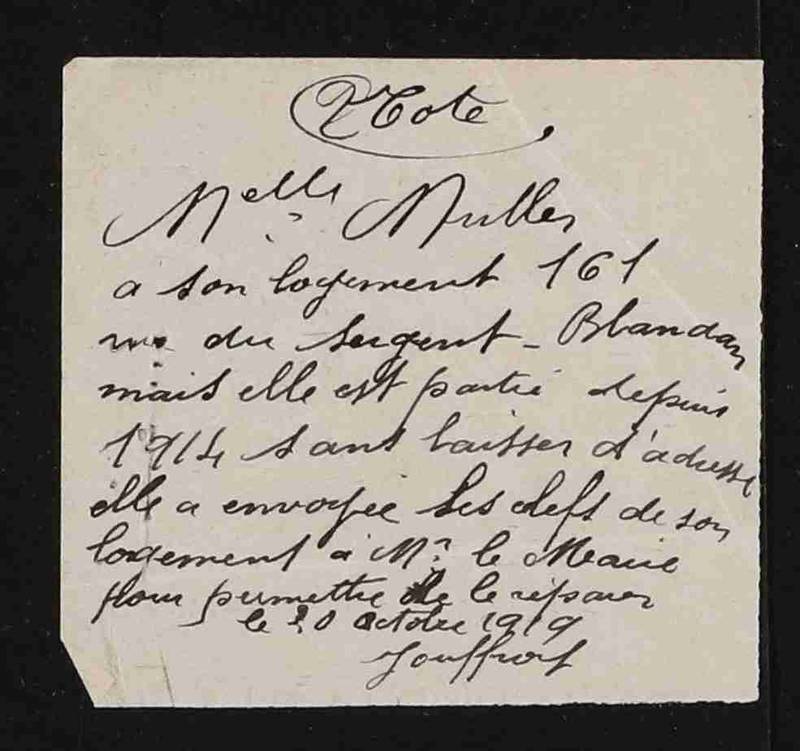 Note
Melle Muller
a son logement 161
rue du Sergent - Blandan
mais elle est partie depuis
1914 sans laisser d'adresse
elle a envoyée les clefs de son
logement à Mr. le Maire
pour permettre de le réparer
le 20 Octobre 1919
Jouffroy